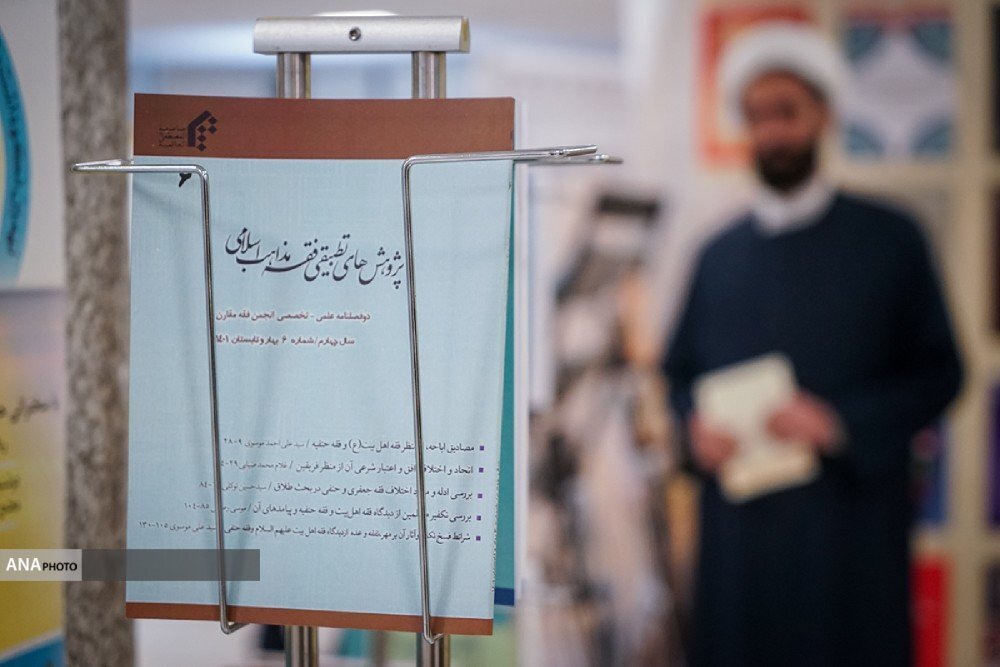 جامعة
المصطفی
العالمیة
۶
پژوهش های تطبیقی فقه مذاهب اسلامی
دوفصلنامه علمی - تخصصی انجمن فقه مقارن
سال چهارم / شماره ۶ بهار و تابستان ۱۴۰۱
مصادیق اباحه، نظر فقه اهل بیت(ع) و فقه حنفیه / سیدعلی احمد موسوی ۹-۲۸
اتحاد و اختلاف افق و اعتبار شرعی آن از منظر فریقین / غلام محمد ۲۹-
بررسی ادله و اختلاف فقه جعفری و حنفی در بحث طلاق / سیدحسین ۸۴
بررسی تکفیر از دیدگاه فقه اهل بیت و فقه حنفیه و پیامدهای آن / موسی ۸۵-۱۰۴
شرائط فسخ وآثار آن بر مهر، نفقه و عده از دیدگاه فقه اهل بیت علیهم السلام وفقه حنفی علی موسوی ۱۰۵-۱۳۰
ANA PHOTO